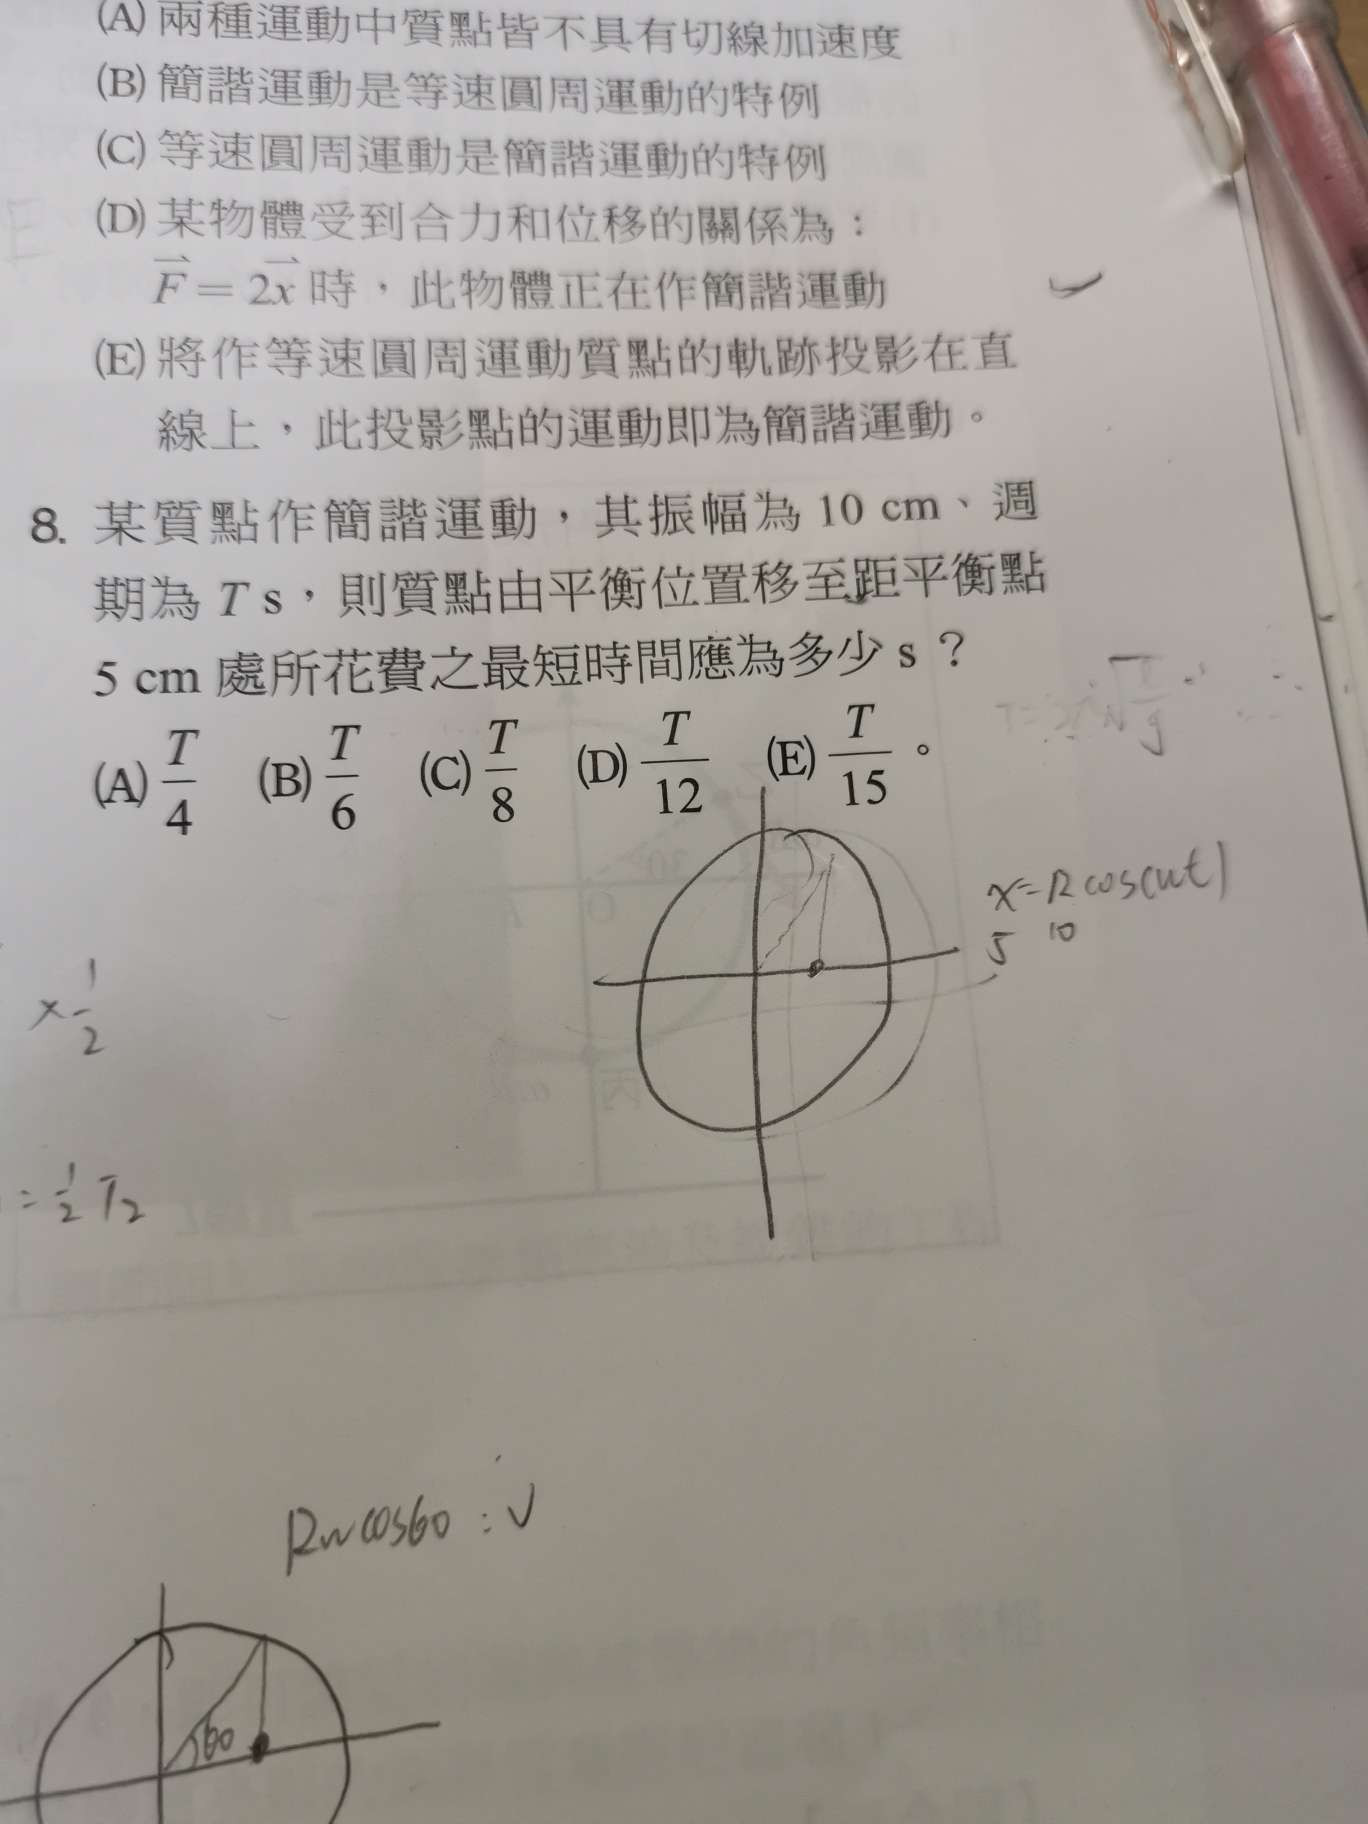 (A) 兩種運動中質點皆不具有切線加速度
(B) 簡諧運動是等速圓周運動的特例
(C) 等速圓周運動是簡諧運動的特例
(D) 某物體受到合力和位移的關係為：
F = 2x 時，此物體正在作簡諧運動
(E) 將作等速圓周運動質點的軌跡投影在直
線上，此投影點的運動即為簡諧運動。
8. 某質點作簡諧運動，其振幅為 10 cm、週
期為 T s，則質點由平衡位置移至距平衡點
5 cm 處所花費之最短時間應為多少 s？
(A) T/4 (B) T/6 (C) T/8 (D) T/12 (E) T/15。
x=Rcos(wt)
5 10
× 1/2
= 1/2 T2
Rwcos60 : V
60